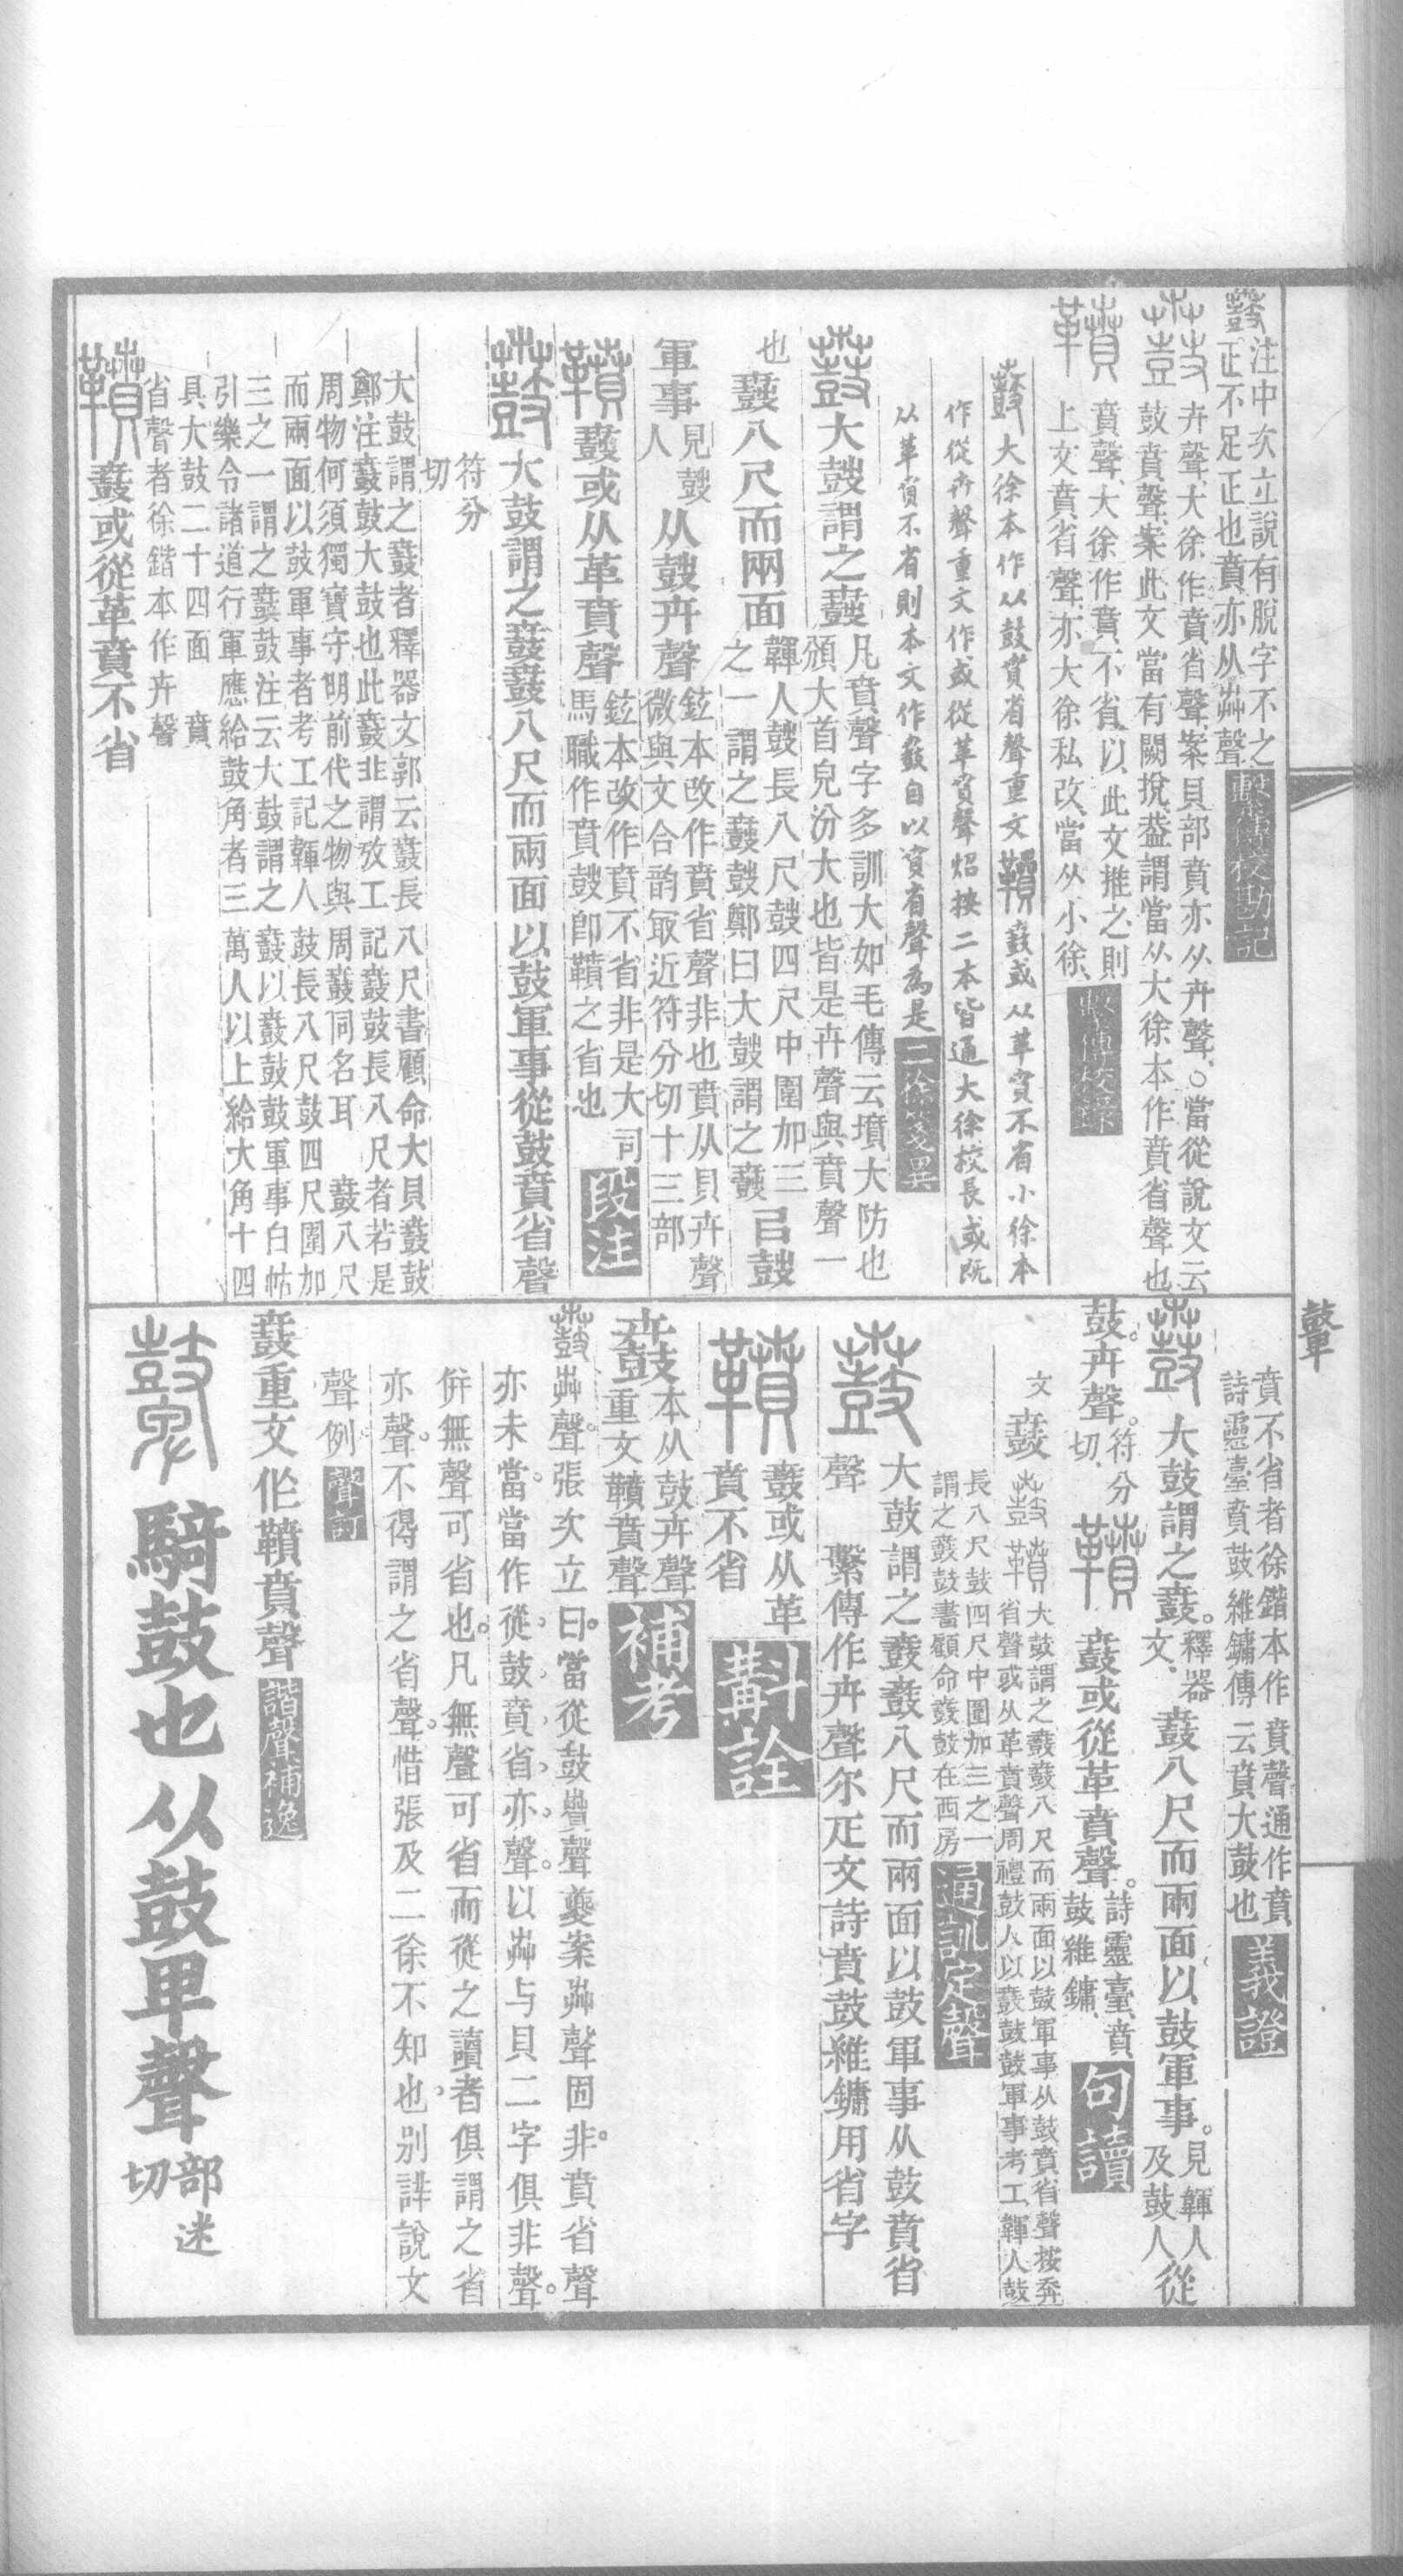 鼖注中次立說有脫字不之
正不足正也賁亦从芔聲繫傳校勘記
鼖卉聲大徐作賁省聲案貝部賁亦从卉聲○當從說文云
鼓賁聲案此文當有闕挩葢謂當从大徐本作賁省聲也
轒賁聲大徐作賁不省以此文推之則
上文賁省聲亦大徐私改當从小徐
鼖大徐本作从鼓賁省聲重文轒鼖或从革賁不省小徐本
作從卉聲重文作或從革賁聲炤按二本皆通大徐校長或既
从革賁不省則本文作鼖自以賁省聲為是二徐箋異
鼖大鼓謂之鼖凡賁聲字多訓大如毛傳云墳大防也
頒大首皃汾大也皆是卉聲與賁聲一
也鼖八尺而兩面韗人鼓長八尺鼓四尺中圍加三
之一謂之鼖鼓鄭曰大鼓謂之鼖㠯鼓
軍事見鼓人从鼓卉聲鉉本改作賁省聲非也賁从貝卉聲
微與文合韵㝡近符分切十三部
轒鼖或从革賁聲鉉本改作賁不省非是大司
馬職作賁鼓卽轒之省也段注
鼖大鼓謂之鼖鼖八尺而兩面以鼓軍事從鼓賁省聲
符分切
大鼓謂之鼖者釋器文郭云鼖長八尺書顧命大貝鼖鼓
鄭注鼖鼓大鼓也此鼖非謂攷工記鼖鼓長八尺者若是
周物何須獨寶守明前代之物與周鼖同名耳 鼖八尺
而兩面以鼓軍事者考工記韗人鼓長八尺鼓四尺圍加
三之一謂之鼖鼓注云大鼓謂之鼖以鼖鼓鼓軍事白帖
引樂令諸道行軍應給鼓角者三萬人以上給大角十四
具大鼓二十四面 賁
省聲者徐鍇本作卉聲
轒鼖或從革賁不省
鼙
賁不省者徐鍇本作賁聲通作賁
詩靈臺賁鼓維鏞傳云賁大鼓也義證
鼖大鼓謂之鼖。釋器文鼖八尺而兩面以鼓軍事。見韗人及鼓人從
鼓。卉聲。符分切轒鼖或從革賁聲。詩靈臺賁鼓維鏞句讀
文鼖鼖轒大鼓謂之鼖鼖八尺而兩面以鼓軍事从鼓賁省聲按卉
省聲或从革賁聲周禮鼓人以鼖鼓鼓軍事考工韗人鼓
長八尺鼓四尺中圍加三之一
謂之鼖鼓書顧命鼖鼓在西房通訓定聲
鼖大鼓謂之鼖鼖八尺而兩面以鼓軍事从鼓賁省
聲 繫傳作卉聲尔疋文詩賁鼓維鏞用省字
轒鼖或从革
賁不省斠詮
鼖本从鼓卉聲
重文轒賁聲補考
鼖芔聲。張次立曰。當從鼓賁聲夔案芔聲固非。賁省聲
亦未當。當作從鼓賁省亦聲。以芔与貝二字俱非聲。
倂無聲可省也。凡無聲可省而從之讀者俱謂之省
亦聲。不得謂之省聲。惜張及二徐不知也。別詳說文
聲例聲訂
鼖重文作轒賁聲諧聲補逸
鼙騎鼓也从鼓卑聲部迷切